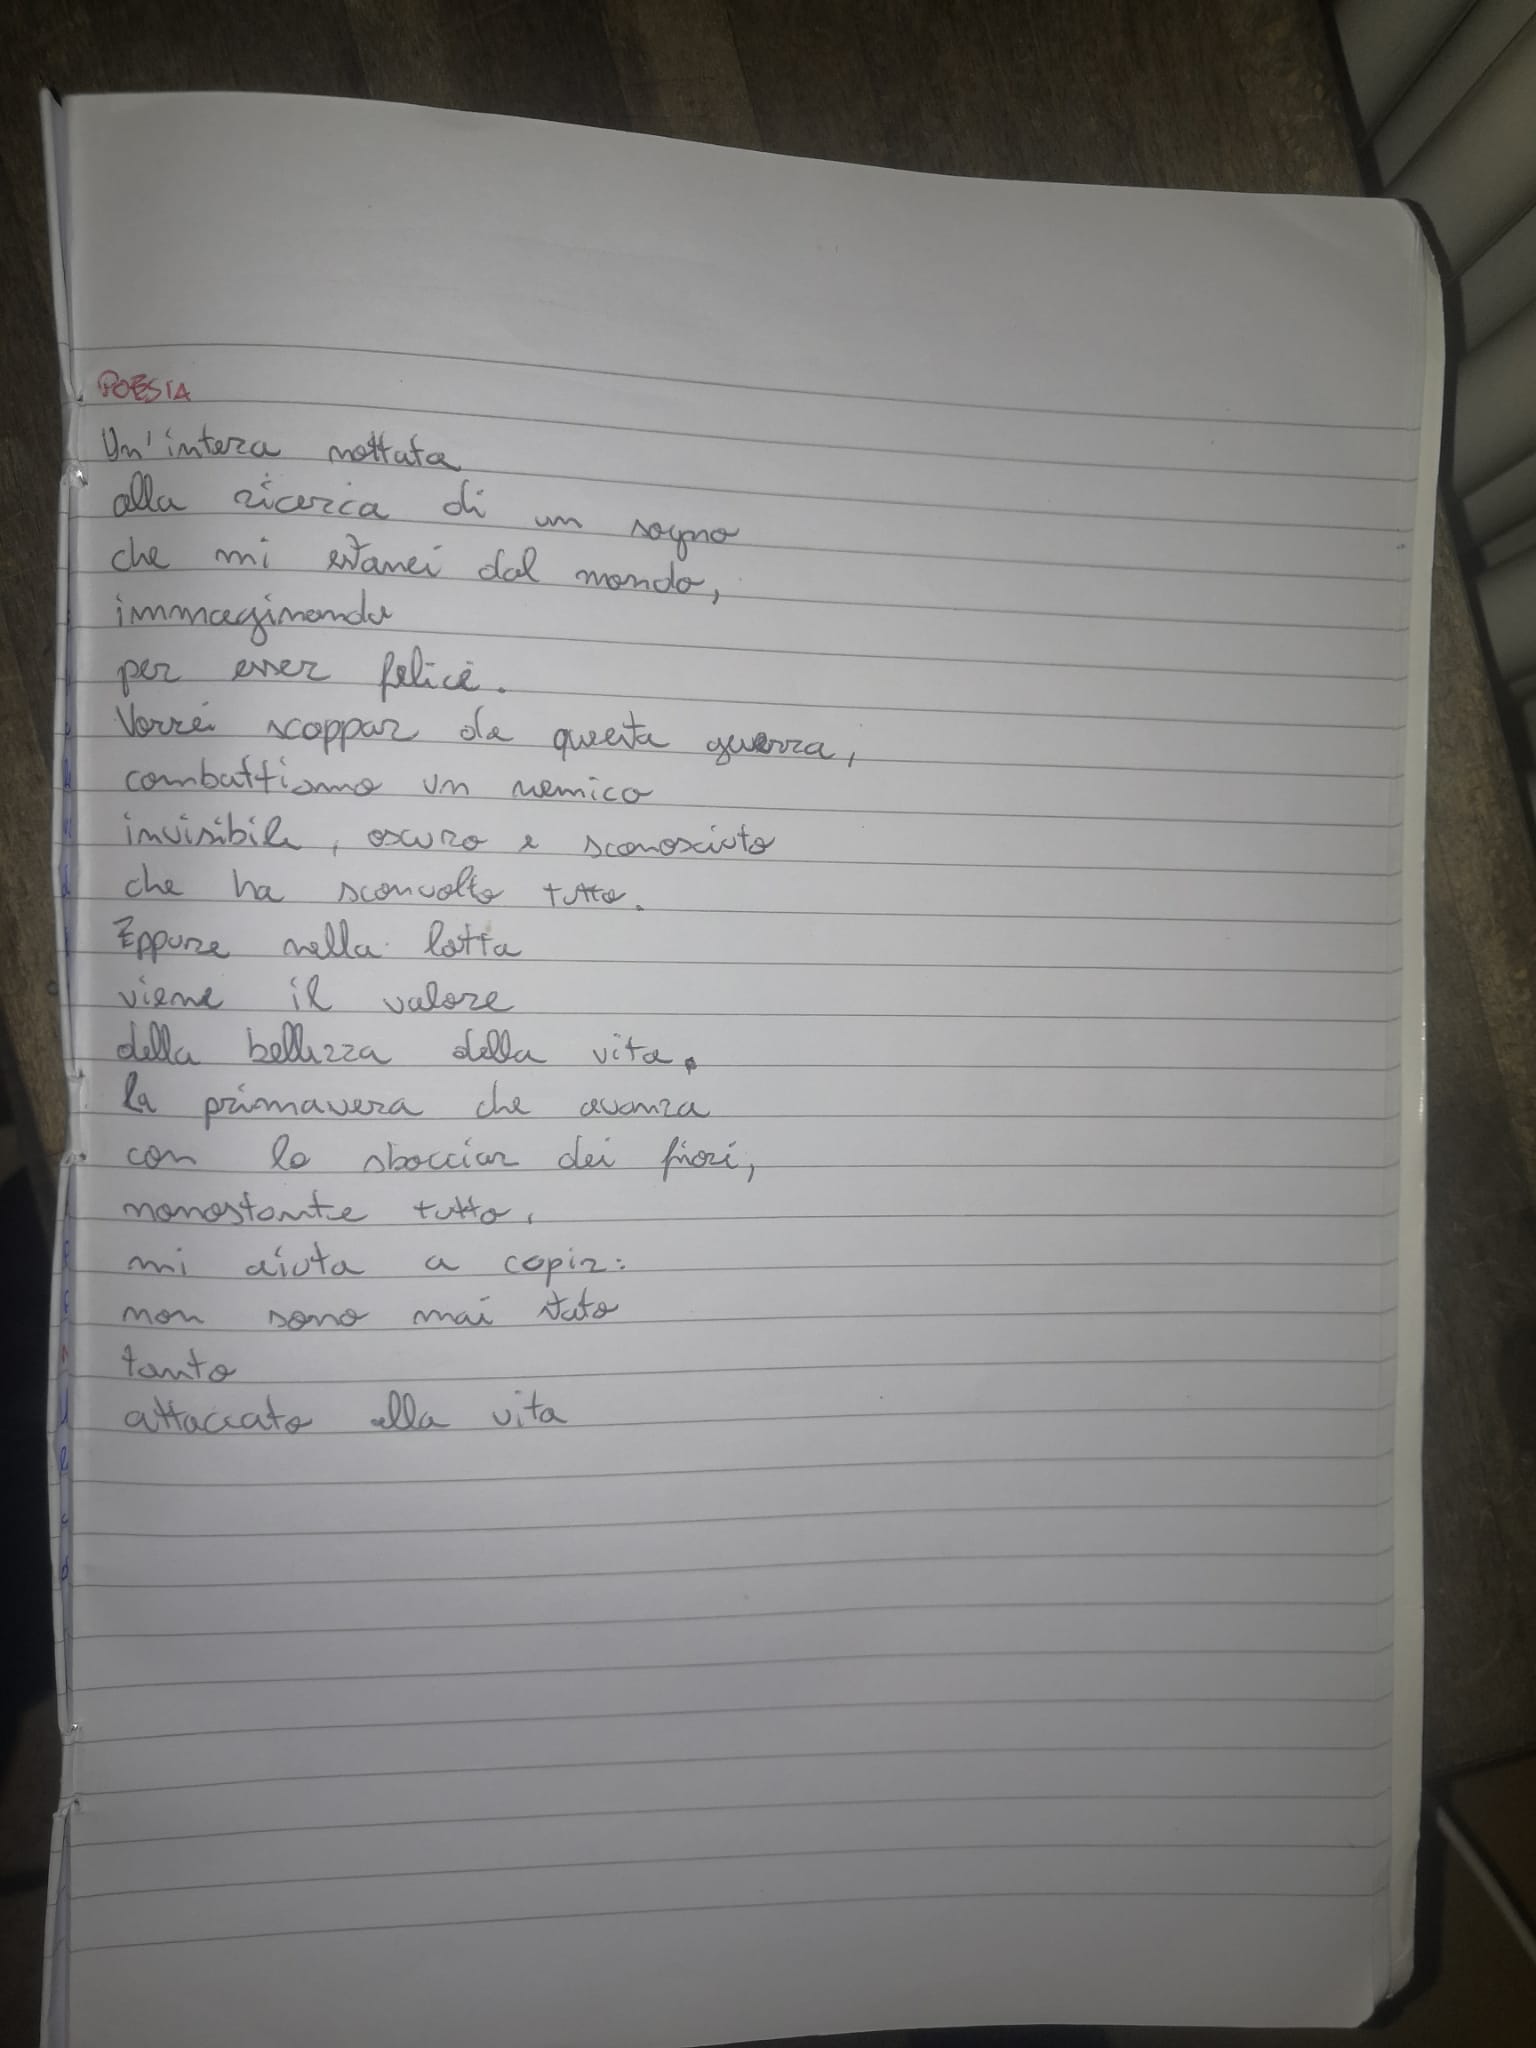 POESIA
Un'intera nottata
alla ricerca di un sogno
che mi estanei dal mondo,
immaginando
per esser felice.
Vorrei scappar da questa guerra,
combattiamo un nemico
invisibile, oscuro e sconosciuto
che ha sconvolto tutto.
Eppure nella lotta
viene il valore
della bellezza della vita.
la primavera che avanza
con lo sbocciar dei fiori,
nonostante tutto,
mi aiuta a capir:
non sono mai stato
tanto
attaccato alla vita